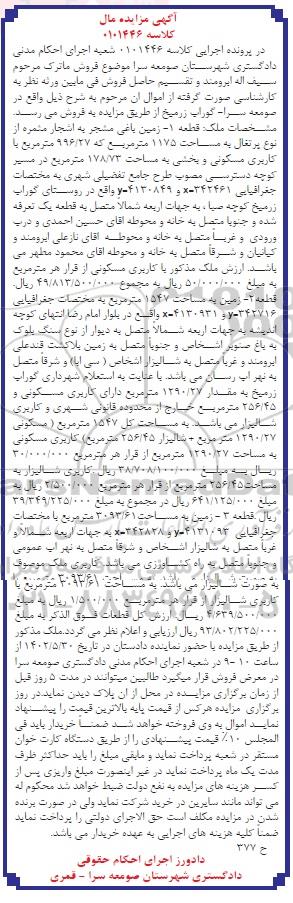 آگهی مزایده مال
کلاسه ۰۱۰۱۴۴۶
در پرونده اجرایی کلاسه ۰۱۰۱۴۴۶ شعبه اجرای احکام مدنی
دادگستری شهرستان صومعه سرا موضوع فروش ماترک مرحوم
سیف اله ابرومند و تقسیم حاصل فروش فی مابین ورثه نظر به
کارشناسی صورت گرفته از اموال ان مرحوم به شرح ذیل واقع در
صومعه سرا- گوراب زرمیخ از طریق مزایده به فروش می رسد.
مشخصات ملک: قطعه ۱- زمین باغی مشجر به اشجار مثمره از
نوع پرتغال به مساحت ۱۱۷۵ مترمربع که ۹۹۶/۲۷ مترمربع با
کاربری مسکونی و بخشی به مساحت ۱۷۸/۷۳ مترمربع در مسیر
کوچه دسترسی مصوب طرح جامع تفضیلی شهری به مختصات
جغرافیایی x=۳۴۲۴۶۱ و y=۴۱۳۰۸۴۹ واقع در روستای گوراب
زرمیخ کوچه صبا، به جهات اربعه شمالا متصل به قطعه یک تعرفه
شده و جنوبا متصل به خانه و محوطه اقای حسین احمدی و درب
ورودی و غرباً متصل به خانه و محوطه اقای نازعلی ابرومند و
کیانیان و شرقاً متصل به خانه و محوطه اقای محمود مطهر می
باشد. ارزش ملک مذکور با کاربری مسکونی از قرار هر مترمربع
به مبلغ ۵۰/۰۰۰/۰۰۰ ریال به مجموع ۴۹/۸۱۳/۵۰۰/۰۰۰ ریال.
قطعه۲- زمین به مساحت ۱۵۴۷ مترمربع به مختصات جغرافیایی
y=۳۴۲۷۱۶ و x=۴۱۳۰۹۳۱ واقع در بلوار امام رضا انتهای کوچه
اندیشه به جهات اربعه شمالاً متصل به دیوار از نوع سنگ بلوک
به باغ صنوبر اشخاص و جنوباً متصل به زمین بلاکشت قندعلی
ابرومند و غرباً متصل به شالیزار اشخاص ( سی ابا) و شرقاً متصل
به نهر اب رسان می باشد. با عنایت به استعلام شهرداری گوراب
زرمیخ به مقدار ۱۲۹۰/۲۷ مترمربع دارای کاربری مسکونی و
۲۵۶/۴۵ مترمربع خارج از محدوده قانونی شهری و کاربری
شالیزار می باشد. به مساحت کل ۱۵۴۷ مترمربع ( مسکونی
۱۲۹۰/۲۷ متر مربع + شالیزار ۲۵۶/۴۵ مترمربع) کاربری مسکونی
به مساحت ۱۲۹۰/۲۷ مترمربع از قرار هر مترمربع ۳۰/۰۰۰/۰۰۰
ریال به مبلغ ۳۸/۷۰۸/۱۰۰/۰۰۰ ریال. کاربری شالیزار به
مساحت۲۵۶/۴۵ مترمربع از قرار هر مترمربع ۲/۵۰۰/۰۰۰ ریال به
مبلغ ۶۴۱/۱۲۵/۰۰۰ ریال در مجموع به مبلغ ۳۹/۳۴۹/۲۲۵/۰۰۰
ریال .قطعه ۳ - زمین به مساحت۳۰۹۳/۶۱ مترمربع با مختصات
جغرافیایی y=۴۱۳۱۰۹۳ و x=۳۴۲۸۲۸ به جهات اربعه شمالا و
غرباً متصل به شالیزار اشخاص و شرقاً متصل به نهر اب عمومی
و جنوبا متصل به راه کشاورزی می باشد. کاربری ملک موصوف
به صورت شالیزار می باشد. به مساحت ۳۰۹۳/۶۱ مترمربع با
کاربری شالیزار از قرار هر مترمربع ۱/۵۰۰/۰۰۰ ریال به مبلغ
۴/۶۳۹/۵۰۰/۰۰۰ ریال. ارزش کل قطعات فوق الذکر به مبلغ
۹۳/۸۰۲/۲۲۵/۰۰۰ ریال ارزیابی و اعلام نظر می گردد.ملک مذکور
از طریق مزایده با حضور نماینده دادستان در تاریخ ۱۴۰۲/۵/۳۰ از
ساعت ۱۰ -۹ در شعبه اجرای احکام مدنی دادگستری صومعه سرا
در معرض فروش قرار میگیرد طالبین میتوانند در مدت ۵ روز قبل
از زمان برگزاری مزایده در محل از ان پلاک دیدن نماید.در روز
برگزاری مزایده هرکس از قیمت پایه بالاترین قیمت را پیشنهاد
نماید اموال به وی فروخته خواهد شد ضمناً خریدار باید فی
المجلس ۱۰٪ قیمت پیشنهادی را از طریق دستگاه کارت خوان
مستقر در شعبه پرداخت نماید و مابقی مبلغ را باید حداکثر ظرف
مدت یک ماه پرداخت نماید در غیر اینصورت مبلغ واریزی پس از
کسر هزینه های مزایده به نفع دولت ضبط خواهد شد محکوم له
می تواند مانند سایرین در خرید شرکت نماید ولی در صورت برنده
شدن در مزایده مکلف است حق الاجرای دولتی را پرداخت نماید
ضمناً کلیه هزینه های اجرایی به عهده خریدار می باشد.
ح ۳۷۷
دادورز اجرای احکام حقوقی
دادگستری شهرستان صومعه سرا - قمری